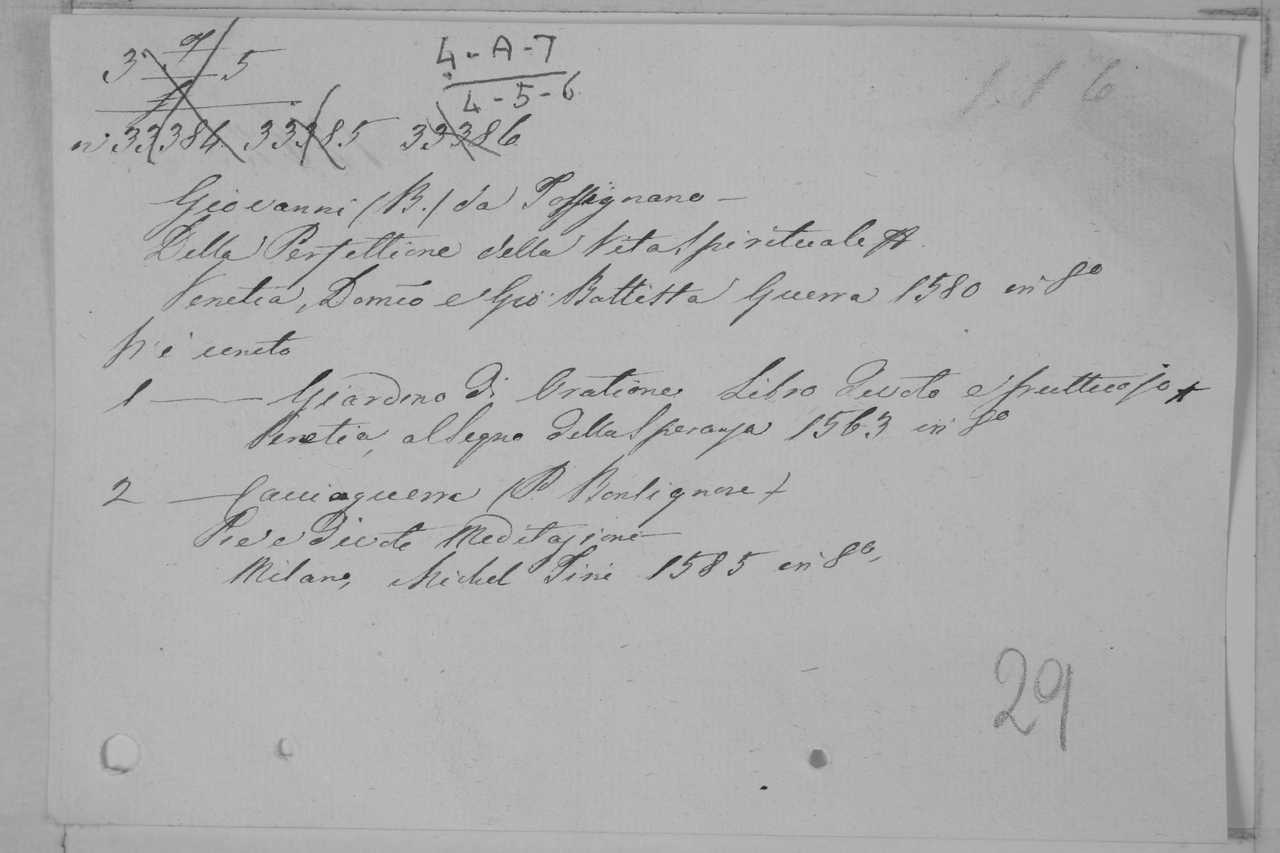 3 7 5
4-A-7
4-5-6
1.1 6
n° 33384 33385 33386
Giovanni (B.) da Tossignano -
Della Perfettione della Vita Spirituale
Venetia, Dom̃co e Gio: Battista Guerra 1580 in 8°
Vi è unito
1 — Giardino di Oratione, Libro divoto e fruttuoso
Venetia, al Segno della Speranza 1563 in 8°
2 — Cacciaguerra (P. Bonsignore)
Pie e Divote Meditazioni
Milano, Michel Tini 1585 in 8°
29